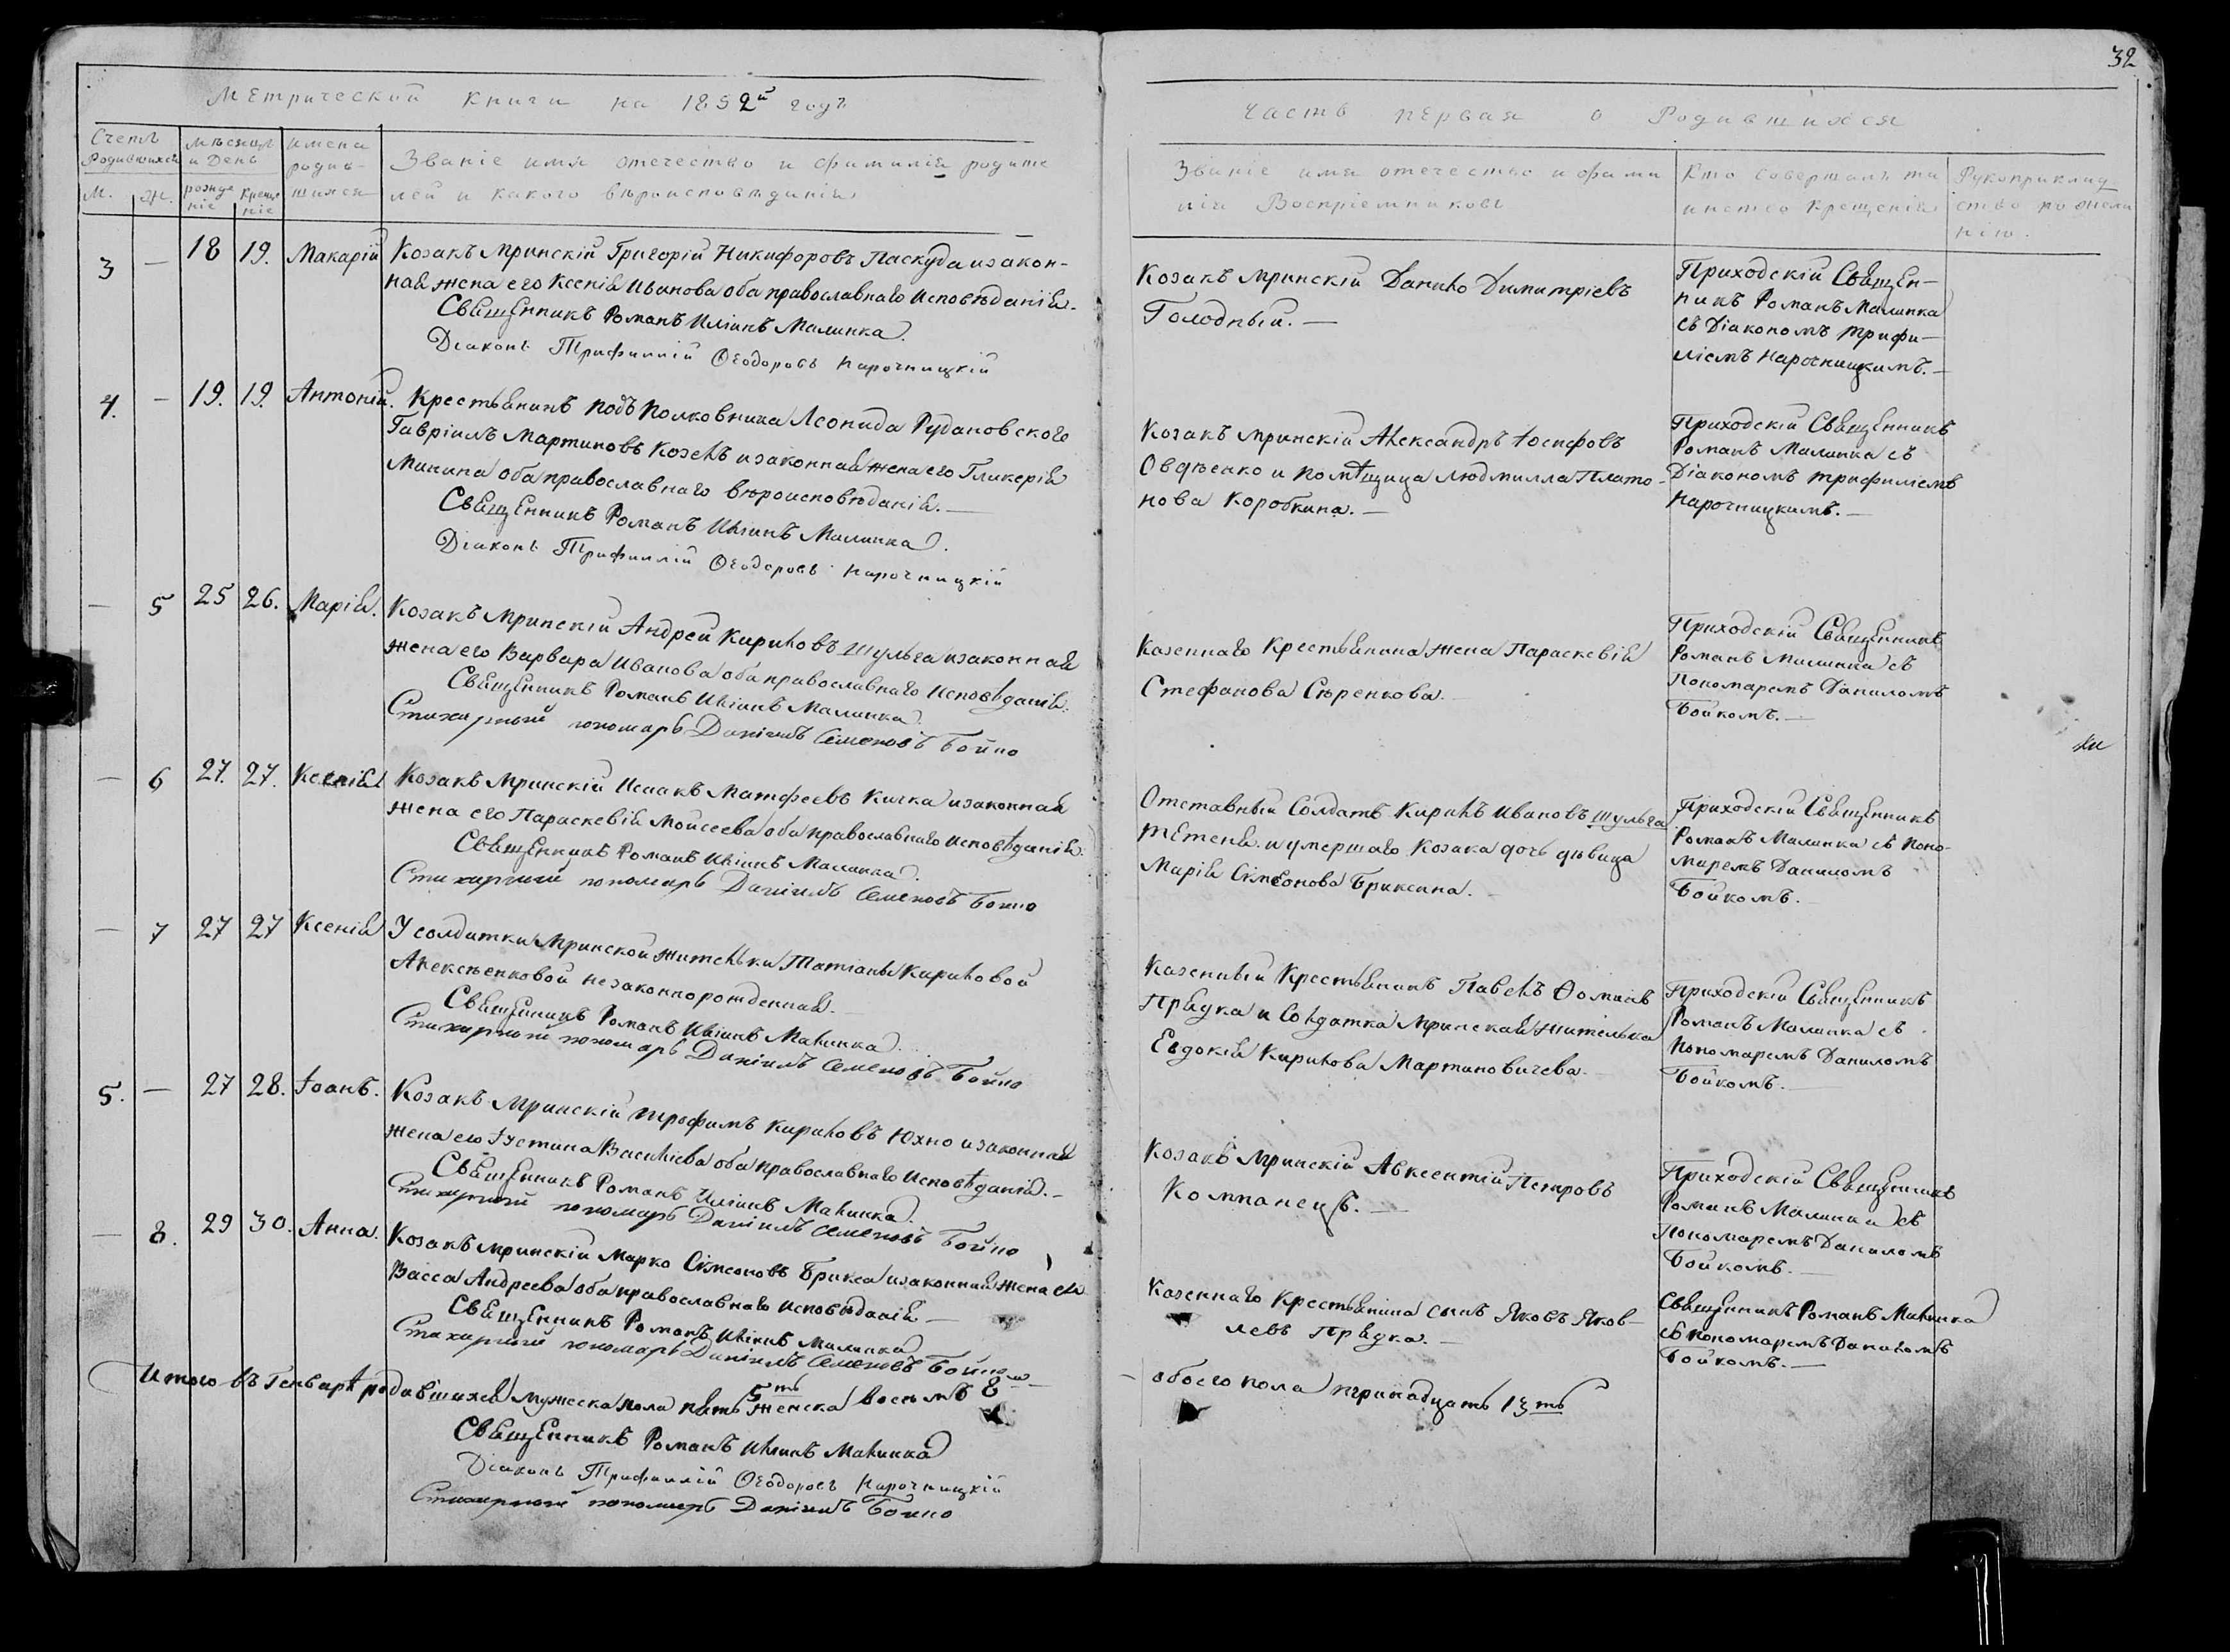 32
Метрической книги на 1852й годъ
Счетъ Родившихся
Мѣсяцъ и День
Имена родив-
шихся
М.
Ж.
рожде
ніе
Креще
ніе
Званіе имя отечество и фамилія родите
лей и какого вѣроисповѣданія
Часть первая о Родившихся
Званіе имя отечество и фами
лія Воспріемниковъ
Кто совершалъ та
инство Крещенія
Рукоприклад
ство по жела
нію.
3 — 18 19. Макарій
Козакъ Мринскій Григорій Никифоровъ Паскуда и закон-
ная жена его Ксенія Иванова оба православнаго Исповѣданія.
Священникъ Романъ Иліинъ Малинка.
Діаконъ Трифиллій Ѳеодоровъ Нарочницкій
Козакъ Мринскій Данило Димитріевъ
Голодный. —
Приходскій Священ-
никъ Романъ Малинка
съ Діакономъ Трифи-
ліемъ Нарочницкимъ. —
4. — 19. 19. Антоній.
Крестьянинъ Подъ Полковника Леонида Рудановского
Гавріилъ Мартиновъ Козелъ и законная жена его Гликерія
Минина оба православнаго вѣроисповѣданія. —
Священникъ Романъ Иліинъ Малинка.
Діаконъ Трифиллій Ѳеодоровъ Нарочницкій
Козакъ Мринскій Александръ Іосифовъ
Овдѣенко и помѣщица Людмилла Плато-
нова Коробкина. —
Приходскій Священникъ
Романъ Малинка съ
Діакономъ Трифиліемъ
Нарочницкимъ. —
— 5 25 26. Марія.
Козакъ Мринскій Андрей Кириловъ Шульга и законная
жена его Варвара Иванова оба православнаго Исповѣданія.
Священникъ Романъ Иліинъ Малинка.
Стихарный пономарь Даніилъ Семеновъ Бойко
Казеннаго Крестьянина жена Параскевія
Стефанова Сѣренкова. —
Приходскій Священникъ
Романъ Малинка съ
Пономаремъ Даниломъ
Бойкомъ. —
— 6 27. 27. Ксенія
Козакъ Мринскій Исаакъ Матфеевъ Кичка и законная
жена его Параскевія Моисеева оба православнаго исповѣданія.
Священникъ Романъ Иліинъ Малинка.
Стихарный пономарь Даніилъ Семеновъ Бойко
Отставный Солдатъ Кирилъ Ивановъ Шульга
и умершаго Козака дочь дѣвица
Марія Сімеонова Бриксина. —
Приходскій Священникъ
Романъ Малинка съ Поно-
маремъ Даниломъ
Бойкомъ. —
— 7 27 27 Ксенія
У солдатки Мринской жительки Татіаны Кириловой
Алексѣенковой незаконнорожденная. —
Священникъ Романъ Иліинъ Малинка.
Стихарный пономарь Даніилъ Семеновъ Бойко
Казенный Крестьянинъ Павелъ Ѳоминъ
Прядка и Солдатка Мринская жителька
Евдокія Кирилова Мартиновичева. —
Приходскій Священникъ
Романъ Малинка съ
Пономаремъ Даниломъ
Бойкомъ. —
5. — 27 28. Іоанъ.
Козакъ Мринскій Трофимъ Кириловъ Юхно и законная
жена его Іустина Василіева оба православнаго Исповѣданія. —
Священникъ Романъ Иліинъ Малинка.
Стихарный пономарь Даніилъ Семеновъ Бойко
Козакъ Мринскій Авксентій Петровъ
Компанецъ. —
Приходскій Священникъ
Романъ Малинка съ
Пономаремъ Даниломъ
Бойкомъ. —
— 8. 29 30. Анна.
Козакъ Мринскій Марко Сімеоновъ Брикса и законная жена его
Васса Андреева оба православнаго исповѣданія —
Священникъ Романъ Иліинъ Малинка
Стихарный пономарь Даніилъ Семеновъ Бойко
Казеннаго Крестьянина сынъ Яковъ Яков-
левъ Прядка. —
Священникъ Романъ Малинка
съ пономаремъ Даниломъ
Бойкомъ. —
Итого въ Генварѣ родившихся мужеска пола пять 5ть женска восемь 8мъ —
— обоего пола тринадцать 13ть
Священникъ Романъ Иліинъ Малинка
Діаконъ Трифиллій Ѳеодоровъ Нарочницкій
Стихарный пономарь Даніилъ Бойко